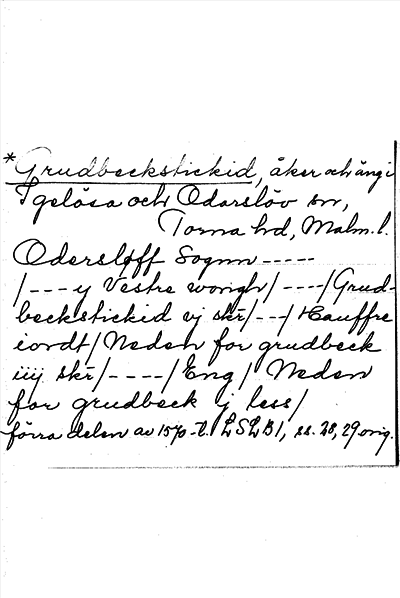 *Grudbeckstickid, åker och äng i
Igelösa och Odarslöv sn,
Torna hd, Malm. l.
Odersløff Sognn -----
/---y Vestre wongh/----/Grud-
beckstickid vj skr/---/Hauffre
iordt/Neden for grudbeck
iiij skr/----/Eng/Neden
for grudbeck j less/
förra delen av 1570-t. LSLB1, ss. 28, 29 orig.